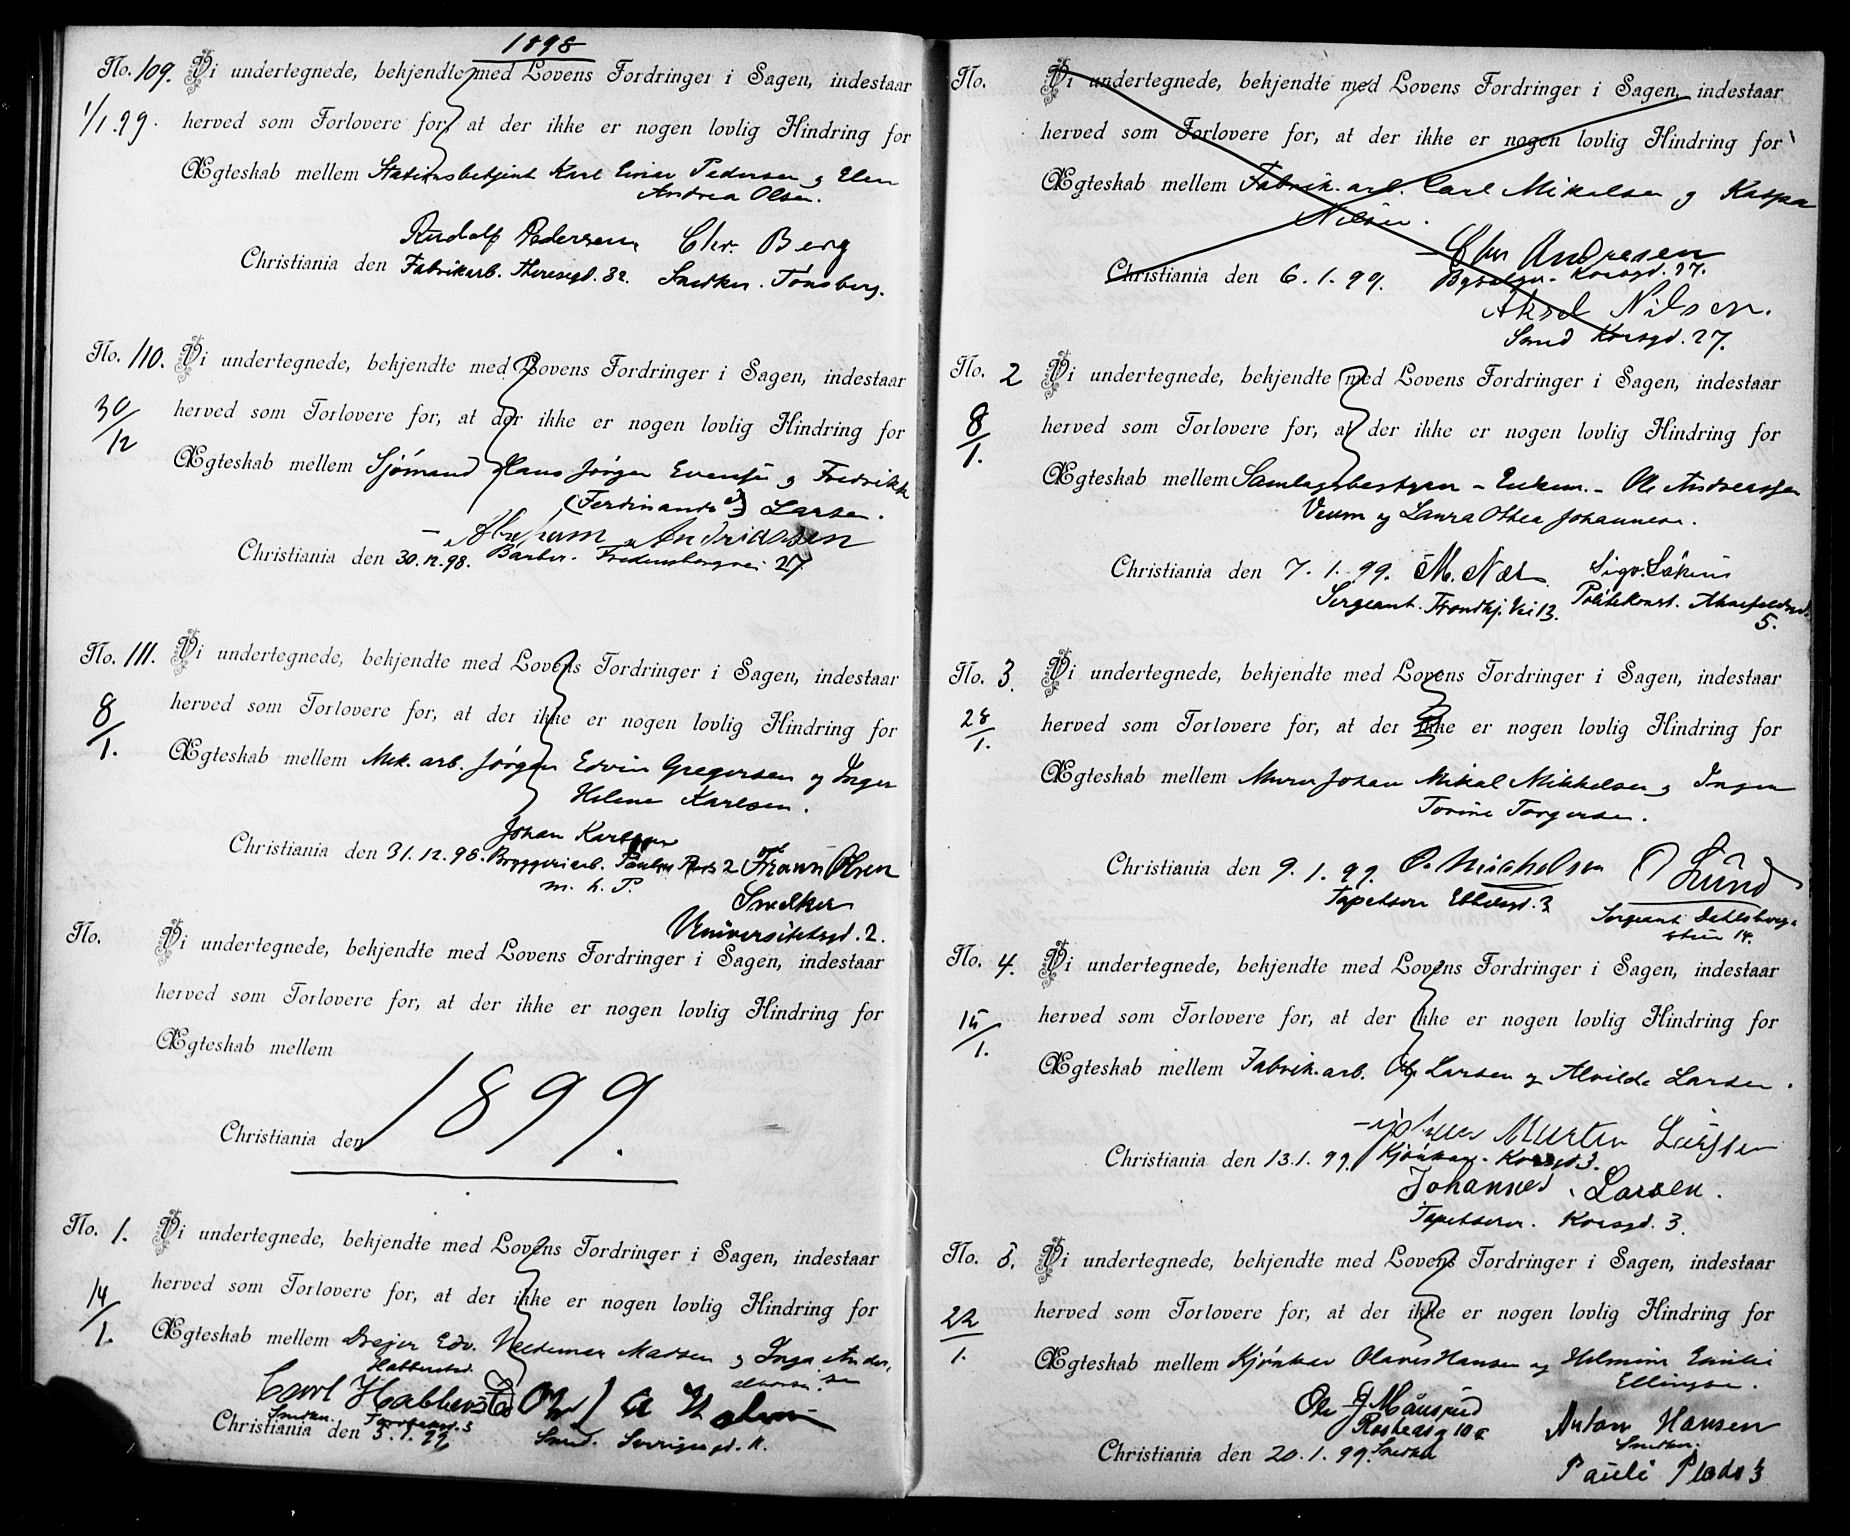 1898
No. 109. Vi undertegnede, bekjendte med Lovens Fordringer i Sagen, indestaar
1/1.99. herved som Forlovere for, at der ikke er nogen lovlig Hindring for
Ægteskab mellem Stationsbetjent Karl Einar Pedersen og Elen
Andrea Olsen.
Rudolf Pedersen Chr. Berg
Christiania den Fabrikarb. Theresegd. 32. Snedker. Tønsberg.
No. 110. Vi undertegnede, bekjendte med Lovens Fordringer i Sagen, indestaar
30/12 herved som Forlovere for, at der ikke er nogen lovlig Hindring for
Ægteskab mellem Sjømand Hans Jørgen Evensen og Fredrikk
(Ferdinanda?) Larsen.
Abraham Andriassen
Christiania den 30.12.98. Barber. Fredensborgvei 27
No. 111. Vi undertegnede, bekjendte med Lovens Fordringer i Sagen, indestaar
8/1. herved som Forlovere for, at der ikke er nogen lovlig Hindring for
Ægteskab mellem Mek. arb. Jørgen Edvin Gregersen og Inger
Helene Karlsen.
Johan Karlsen
Christiania den 31.12.98. Bryggeriarb. Paulus Plads 2 Frans Olsen
m. h. P.
Snedker
Universitetsgd. 2.
No. Vi undertegnede, bekjendte med Lovens Fordringer i Sagen, indestaar
herved som Forlovere for, at der ikke er nogen lovlig Hindring for
Ægteskab mellem
1899.
Christiania den
No. 1. Vi undertegnede, bekjendte med Lovens Fordringer i Sagen, indestaar
14/1. herved som Forlovere for, at der ikke er nogen lovlig Hindring for
Ægteskab mellem Drejer Edv. Valdemar Madsen og Inga Ander,
Habberstad sen
Carl Habberstad
Snedker.
Christiania den 5.1.99 Smed. Sverigesgd. 11.
No. Vi undertegnede, bekjendte med Lovens Fordringer i Sagen, indestaar
herved som Forlovere for, at der ikke er nogen lovlig Hindring for
Ægteskab mellem Fabrik. arb. Carl Mikalsen og Kaspa
Nilsen.
Chr Andresen
Christiania den 6.1.99. Korsgd. 27.
Aksel Nilsen.
Smed Korsgd. 27.
No. 2 Vi undertegnede, bekjendte med Lovens Fordringer i Sagen, indestaar
8/1. herved som Forlovere for, at der ikke er nogen lovlig Hindring for
Ægteskab mellem Samlagsbestyrer - Enkem. - Ole Andreassen
Veum og Laura Othea Johannesen.
Christiania den 7.1.99. M. Næs
Sergeant. Trondhj. Vei 13. Politikonst.
5.
No. 3. Vi undertegnede, bekjendte med Lovens Fordringer i Sagen, indestaar
28/1. herved som Forlovere for, at der ikke er nogen lovlig Hindring for
Ægteskab mellem Murer Johan Mikal Mikkelsen og Inga
Torine Torgersen.
Christiania den 9.1.99. O. Michelsen Lund
Tapetserer Sergeant Dehlsberg-
stien 14.
No. 4. Vi undertegnede, bekjendte med Lovens Fordringer i Sagen, indestaar
15/1. herved som Forlovere for, at der ikke er nogen lovlig Hindring for
Ægteskab mellem Fabrik. arb. Ole Larsen og Alvilde Larsen.
Martin Larssen
Christiania den 13.1.99. Kjørekar. Korsgd 3.
Johannes Larsen.
Tapetserer. Korsgd. 3.
No. 5. Vi undertegnede, bekjendte med Lovens Fordringer i Sagen, indestaar
22/1. herved som Forlovere for, at der ikke er nogen lovlig Hindring for
Ægteskab mellem Kjørekar Olaves Hansen og Helmine Emilie
Ellingsen.
Ole J. Anton Hansen
10a Snedker.
Christiania den 20.1.99. Snedker
Pauli Plads 3